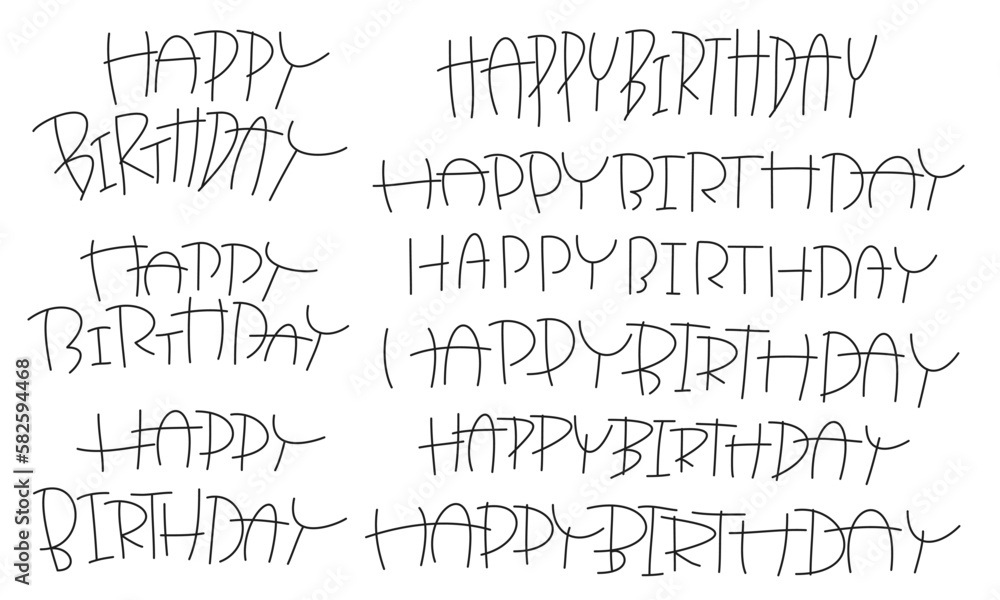 HAPPY
BIRTHDAY
HAPPY
BIRTHDAY
HAPPY
BIRTHDAY
HAPPY BIRTHDAY
HAPPY BIRTHDAY
HAPPY BIRTHDAY
HAPPY BIRTHDAY
HAPPY BIRTHDAY
HAPPY BIRTHDAY
Adobe Stock | #582594468